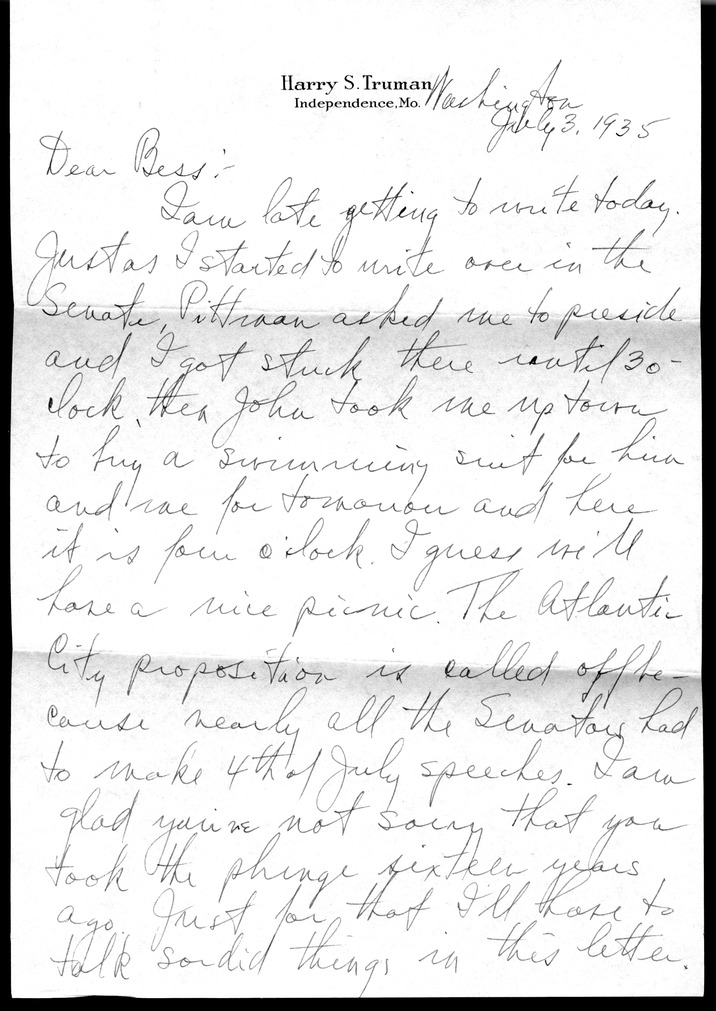 Harry S. Truman
Independence, Mo.
Washington
July 3, 1935
Dear Bess:-
I am late getting to write today.
Just as I started to write over in the
Senate, Pittman asked me to preside
and I got stuck there until 3 o-
clock, then John took me up town
to buy a swimming suit for him
and me for tomorrow and here
it is four o'clock. I guess we'll
have a nice picnic. The Atlantic
City proposition is called off be-
cause nearly all the Senators had
to make 4th of July speeches. I am
glad you're not sorry that you
took the plunge sixteen years
ago. Just for that I'll have to
talk sordid things in this letter.